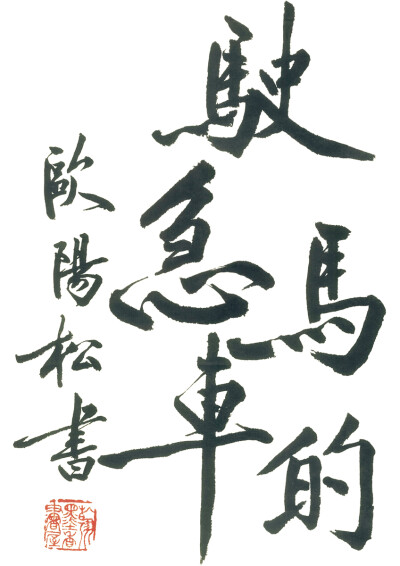 馬的
駛急車
歐陽松書